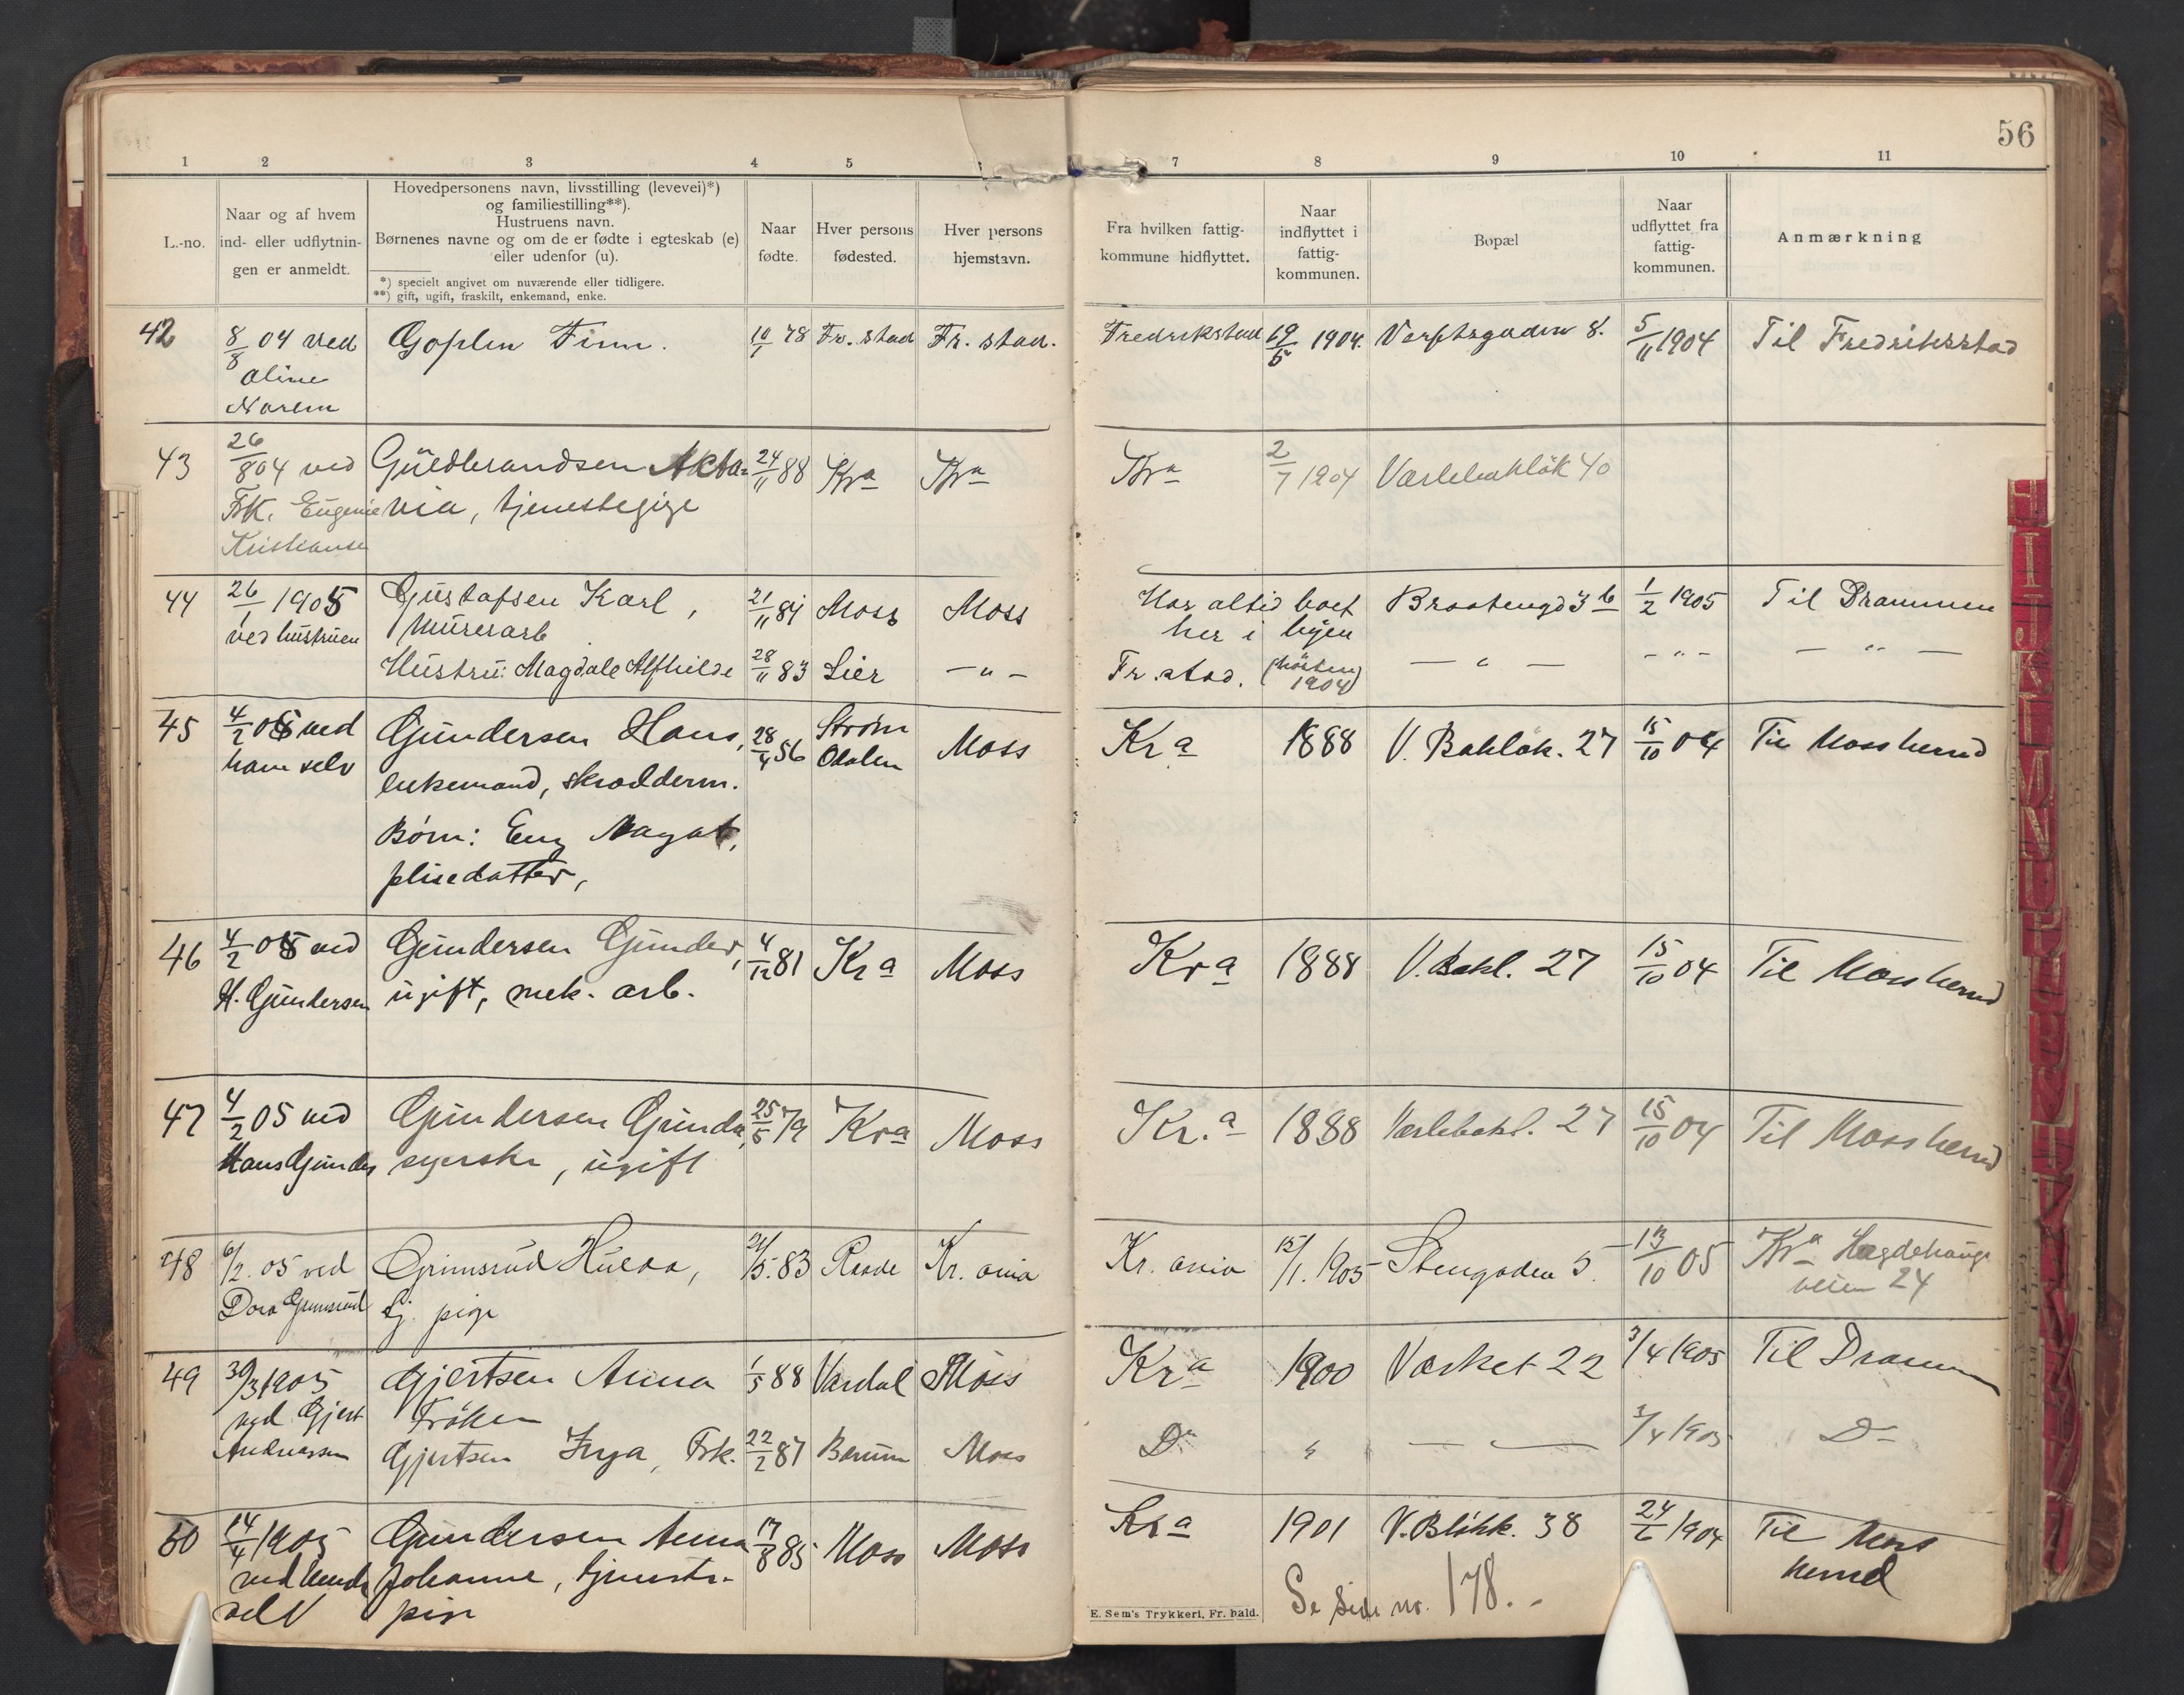 56
1 2 3 4 5 7 8 9 10 11
L.-no.
Naar og af hvem
ind- eller udflytnin-
gen er anmeldt.
Hovedpersonens navn, livsstilling (levevei)*)
og familiestilling**).
Hustruens navn.
Børnenes navne og om de er fødte i egteskab (e)
eller udenfor (u).
*) specielt angivet om nuværende eller tidligere.
**) gift, ugift, fraskilt, enkemand, enke.
Naar
fødte.
Hver persons
fødested.
Hver persons
hjemstavn.
Fra hvilken fattig-
kommune hidflyttet.
Naar
indflyttet i
fattig-
kommunen.
Bopæl
Naar
udflyttet fra
fattig-
kommunen.
Anmærkning
42 8/8 04 ved Goplen Finn. 10/1 78 Fr. stad Fr. stad. Fredrikstad 19/5 1904. Verftsgaden 8. 5/11 1904 Til Fredriksstad
Oline
Narem
43 26/8 04 ved Guldbrandsen Akta- 24/11 88 Kra Kra Kra 2/7 1904 Værlebakløk 40
Frk. Eugenie via, tjenestepige
Kristiansen
44 26/1 1905 Gustafsen Karl, 21/11 84 Moss Moss Har altid boet Braatengd 3 b 1/2 1905 Til Drammen
ved hustruen Murerarb her i byen
Hustru: Magdale Alfhilde 28/11 83 Lier — " — Fr. stad. (hösten 1904) — " — - " - — " —
45 4/2 05 ved Gundersen Hans, 28/4 56 Strøm Moss Kra 1888 V. Bakløk. 27 15/10 04 Til Moss herred
ham selv enkemand, skrædderm. Odalen
Børn: Eng Magat,
pliedatter,
46 4/2 05 ved Gundersen Gunder, 4/12 81 Kra Moss Kra 1888 V. Bakl. 27 15/10 04 Til Moss herred
H. Gundersen ugift, mek. arb.
47 4/2 05 ved Gundersen Gunda, 25/5 79 Kra Moss Kr.a 1888 Værlebakl. 27 15/10 04 Til Moss herred
Hans Gunders syerske, ugift
48 6/2. 05 ved Grimsrud Hulda, 21/5. 83 Raade Kr. ania Kr. ania 15/1. 1905 Stengaden 5. 13/10 05 Kra Hægdehaugs
Dora Grimsrud tj. pige veien 24
49 30/3 1905 Gjertsen Anna 1/5 88 Vardal Moss Kra 1900 Værket 22 3/4 1905 Til Dramm
ved Gjert Frøken
Andreassen Gjertsen Inga, Frk. 22/2 87 Bærum Moss Do " — — 3/4 1905 Do
50 14/4 1905 Gundersen Anna 17/8 85 Moss Moss Kra 1901 V. Bløkk. 38 24/6 1904 Til Moss
ved hende Johanne, tjeneste- herred
selv pige
Se side no. 178. -
E. Sem's Trykkeri, Fr. hald.
H
I
J
K
L
M
N
O